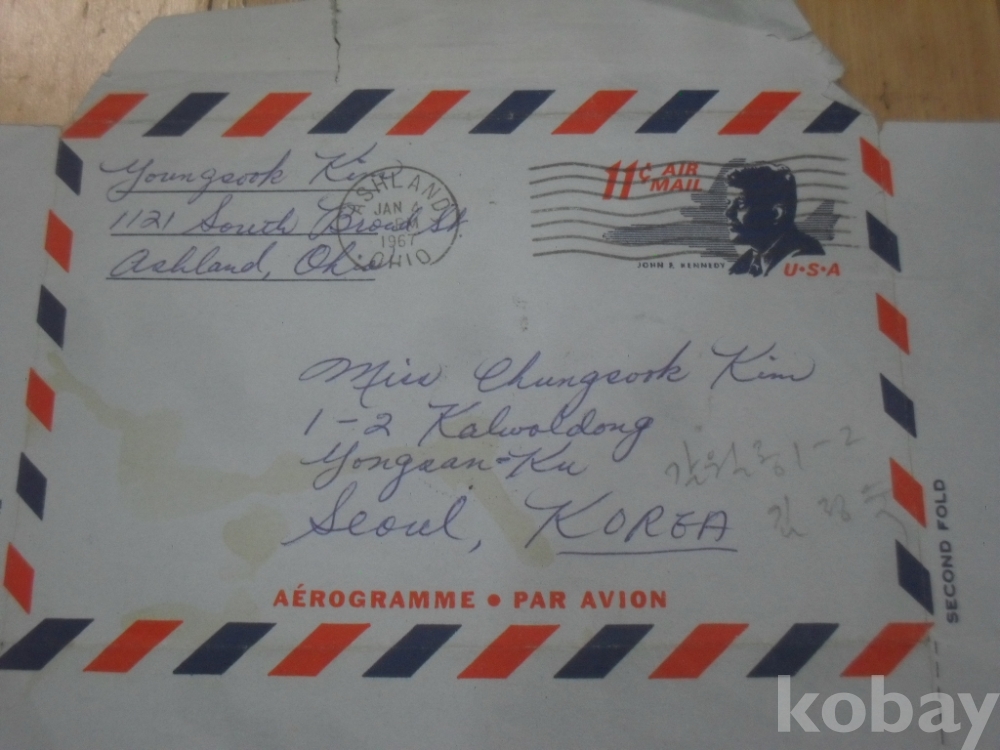 Youngsook Kim
1121 South Broad St.
Ashland, Ohio
ASHLAND
JAN 4
PM
1967
OHIO
11¢ AIR
MAIL
JOHN F. KENNEDY
U·S·A
Miss Chungsook Kim
1-2 Kalwoldong
Yongsan-Ku
Seoul, KOREA
갈월동 1-2
김정숙
AÉROGRAMME • PAR AVION
SECOND FOLD
kobay